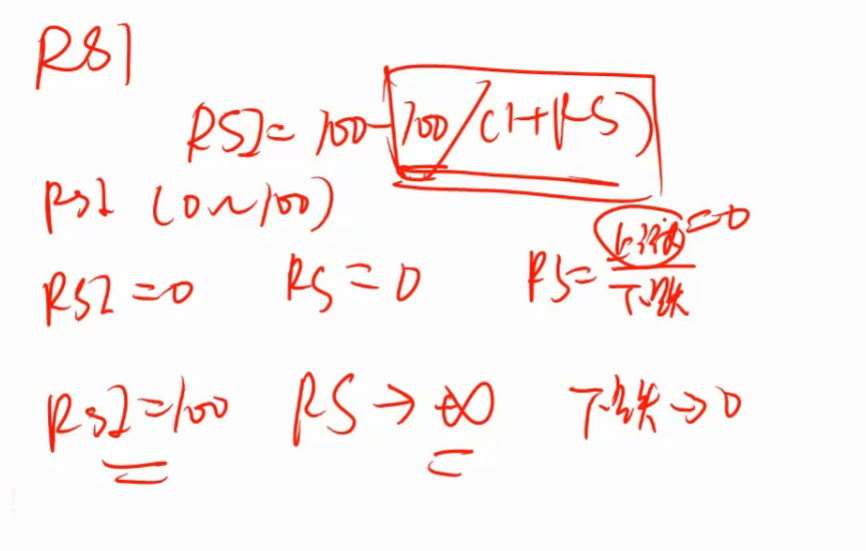 RSI
RSI = 100 - 100/(1+RS)
RSI (0~100)
RSI = 0 RS = 0 RS = 上涨/下跌 = 0
RSI = 100 RS → +∞ 下跌 → 0